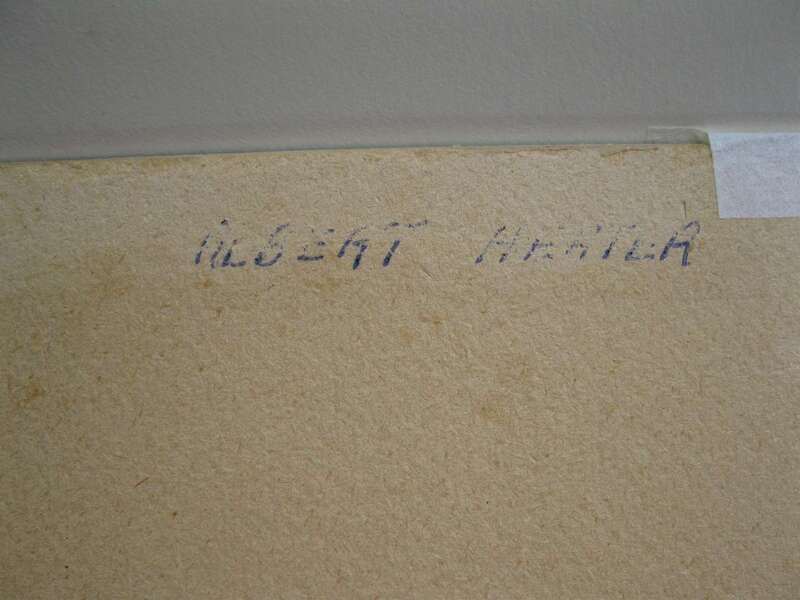 ALBERT HERTER